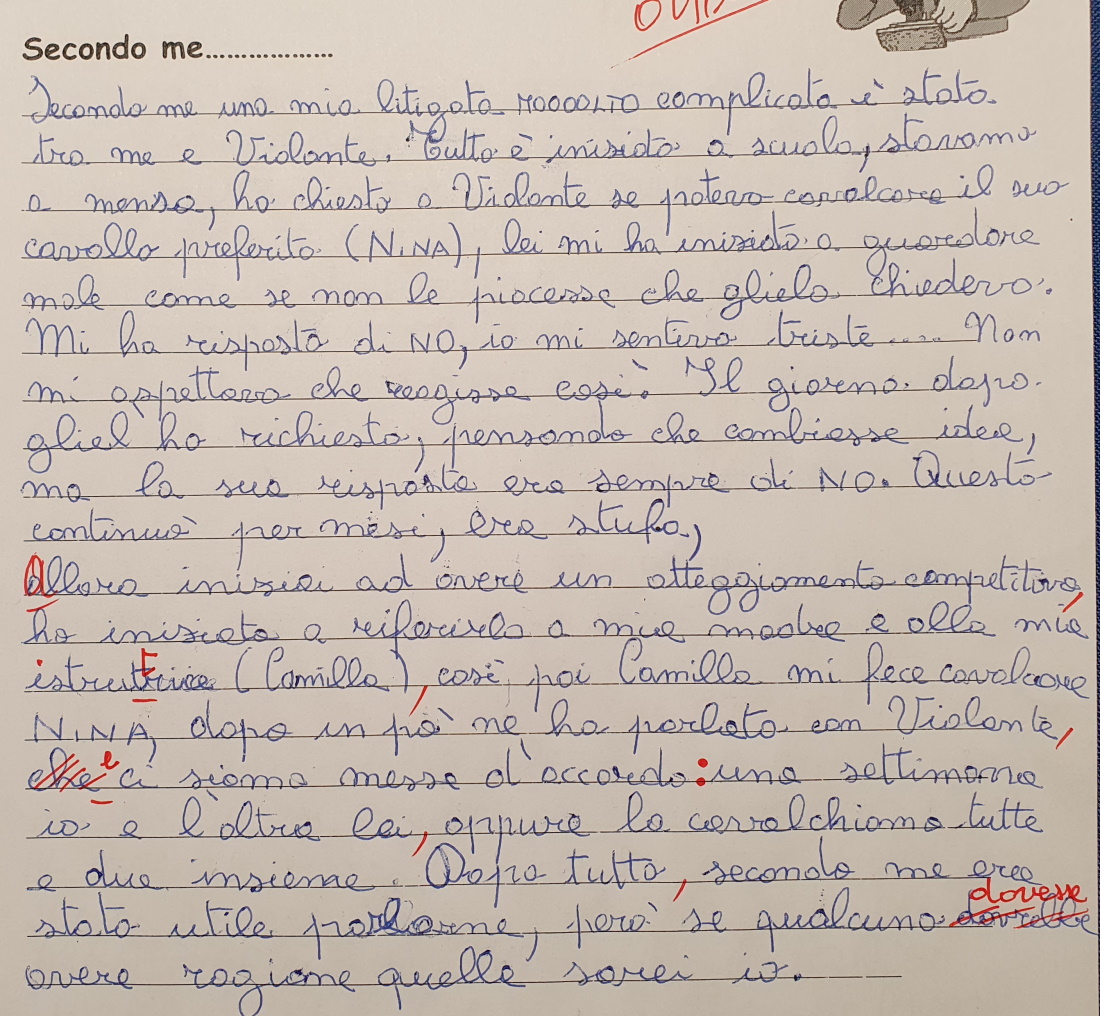 Secondo me..................
Secondo me una mia litigata MOOOOLTO complicata è stata
tra me e Violante. Tutto è iniziato a scuola, stavamo
a mensa, ho chiesto a Violante se potevo cavalcare il suo
cavallo preferito (NINA), lei mi ha iniziato a guardare
male come se non le piacesse che glielo chiedevo.
Mi ha risposto di NO, io mi sentivo triste .... Non
mi aspettavo che reagisse così. Il giorno dopo
gliel ho richiesto, pensando che cambiasse idea,
ma la sua risposta era sempre di NO. Questo
continuò per mesi, ero stufa,
Allora iniziai ad avere un atteggiamento competitivo,
ho iniziato a riferirlo a mia madre e alla mia
istruttrice (Camilla), così, poi Camilla mi fece cavalcare
NINA, dopo un pò ne ho parlato con Violante,
che e ci siamo messe d'accordo: una settimana
io e l'altra lei, oppure la cavalchiamo tutte
e due insieme. Dopo tutto, secondo me era
dovesse
stato utile parlarne, però se qualcuno dovrebbe
avere ragione quella sarei io.